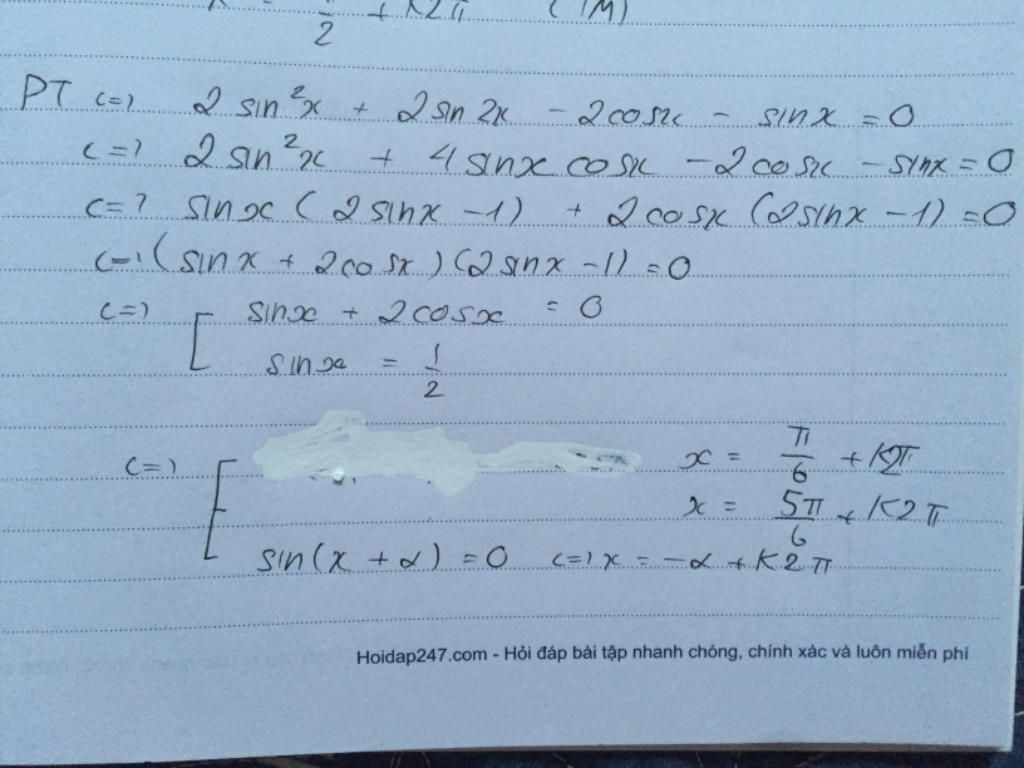 2 + k2π (TM)
PT <=> 2 sin²x + 2 sin 2x - 2cosx - sinx = 0
<=> 2 sin²x + 4 sinx cosx - 2 cosx - sinx = 0
<=> sinx (2 sinx - 1) + 2 cosx (2sinx - 1) = 0
<=> (sinx + 2cosx)(2 sinx - 1) = 0
<=> [ sinx + 2cosx = 0
sinx = 1/2
<=> [ x = π/6 + k2π
x = 5π/6 + k2π
sin(x + α) = 0 <=> x = -α + k2π
Hoidap247.com - Hỏi đáp bài tập nhanh chóng, chính xác và luôn miễn phí